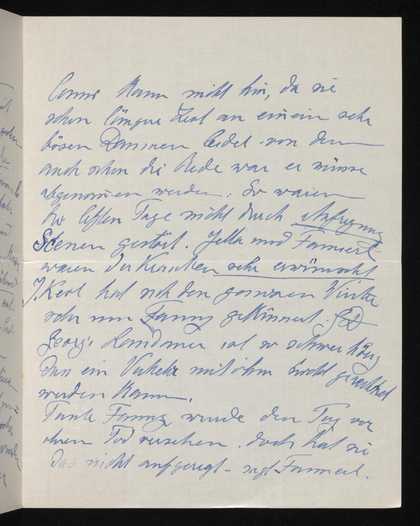 Conns kann nicht hin, da sie
schon längere Zeit an einem sehr
bösen Daumen leidet - von dem
auch schon die Rede war er müsse
abgenommen werden. So waren
die letzten Tage nicht durch Aufregung
Scenen gestört. Jella und
waren der Kranken sehr erwünscht
J. Karl hat sich den ganzen Winter
oder um Fanny gekümmert.
Georg's ist so schwerhörig
dass ein Verkehr mit ihm nicht
werden kann.
Tante Fanny wurde den Tag vor
ihrem Tod versehen. doch hat sie
das nicht aufgeregt - sagt